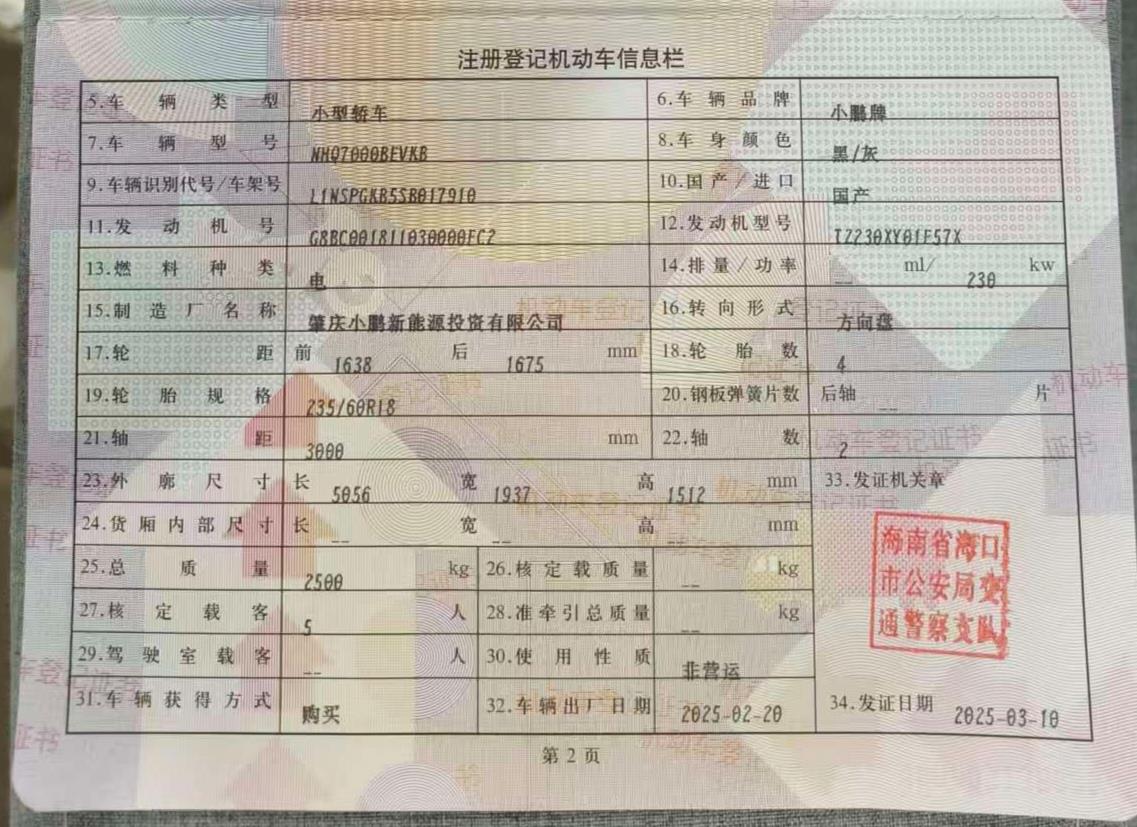 注册登记机动车信息栏
5.车辆类型 小型轿车 6.车辆品牌 小鹏牌
7.车辆型号 NHQ7000BEVKB 8.车身颜色 黑/灰
9.车辆识别代号/车架号 L1NSPGKB5SB017910 10.国产/进口 国产
11.发动机号 G8BC001811030000FC2 12.发动机型号 TZ230XY01F57X
13.燃料种类 电 14.排量/功率 -- ml/ 230 kw
15.制造厂名称 肇庆小鹏新能源投资有限公司 16.转向形式 方向盘
17.轮距 前 1638 后 1675 mm 18.轮胎数 4
19.轮胎规格 235/60R18 20.钢板弹簧片数 后轴 -- 片
21.轴距 3000 mm 22.轴数 2
23.外廓尺寸 长 5056 宽 1937 高 1512 mm 33.发证机关章
24.货厢内部尺寸 长 -- 宽 -- 高 -- mm
海南省海口
市公安局交
通警察支队
25.总质量 2500 kg 26.核定载质量 -- kg
27.核定载客 5 人 28.准牵引总质量 -- kg
29.驾驶室载客 -- 人 30.使用性质 非营运
31.车辆获得方式 购买 32.车辆出厂日期 2025-02-20 34.发证日期 2025-03-10
第2页